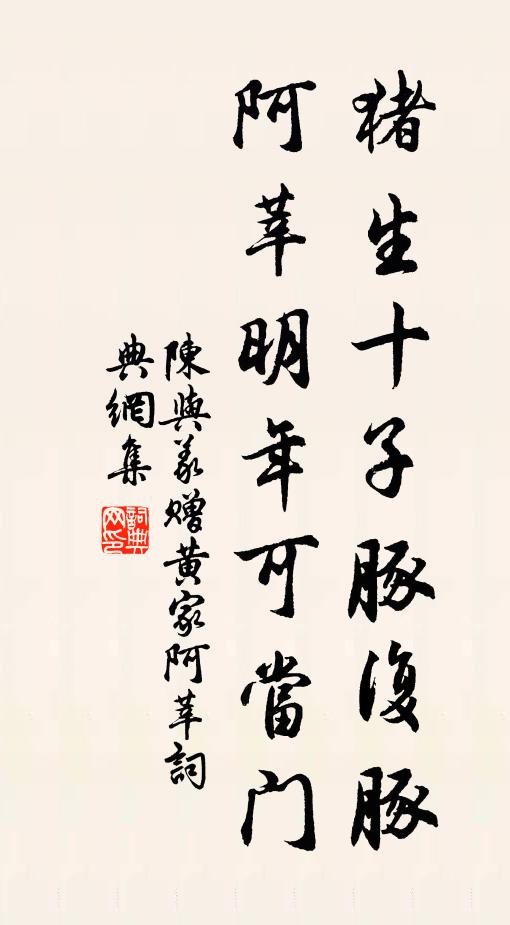 猪生十子豚復豚
阿莘明年可當门
陳與义赠黄家阿莘詞
典網集
詞典
网印